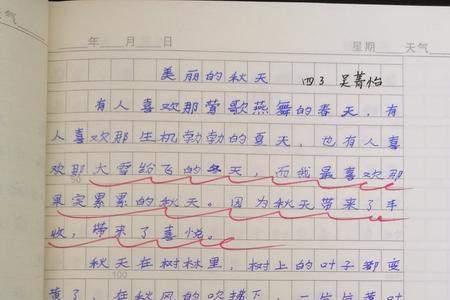 天气
年 月 日 星期 天气
美丽的秋天 四3 吴菁怡
有人喜欢那莺歌燕舞的春天，有
人喜欢那生机勃勃的夏天，也有人喜
欢那大雪纷飞的冬天，而我最喜欢那
50
果实累累的秋天。因为秋天带来了丰
收，带来了喜悦。
秋天在树林里，树上的叶子都变
100
黄了，在秋风的吹拂下，一片片黄叶